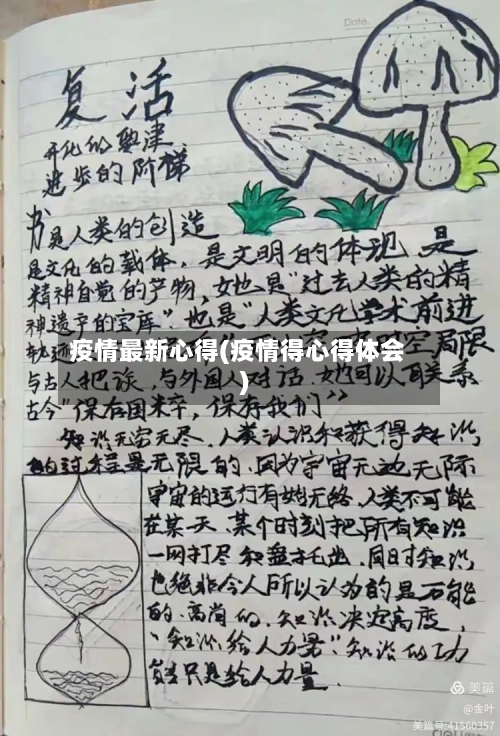 Date.
复活
开化的
进步的阶梯
书是人类的创造
是文化的载体，是文明的体现，是
精神自觉的产物，她也是“过去人类的精
神遗产的宝库”也是“人类文化学术前进
疫情最新心得(疫情得心得体会
)
局限
与古人把谈，与外国人对话，她可以联系
古今“保存国粹，保存我们”
知识无穷无尽，人类认识和获得知识，
的过程是无限的，因为宇宙无边无际
宇宙的运行有始无终，人类不可能
在某一天、某个时刻把所有知识
一网打尽和盘托出，同时知识
也绝非今人所以认为的是万能
的，高尚的，知识决定高度，
“知识给人力量”知识的功
能只是给人力量.
美篇
@金叶
美篇号:41560357